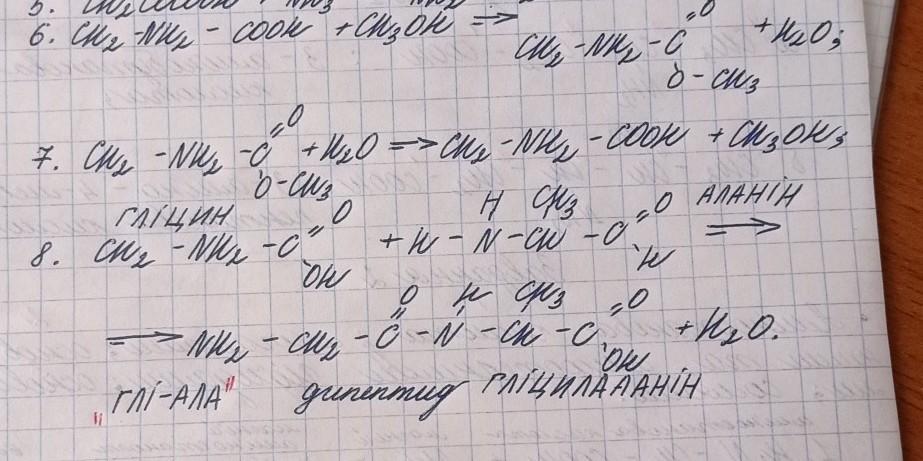 6. CH2 - NH2 - COOH + CH3OH ⇒ CH2 - NH2 - C =O O - CH3 + H2O;
7. CH2 - NH2 - C =O O - CH3 + H2O ⇒ CH2 - NH2 - COOH + CH3OH;
ГЛІЦИН АЛАНІН
8. CH2 - NH2 - C =O OH + H - N H - CH CH3 - C =O H ⇒
⇒ NH2 - CH2 - C =O - N H - CH CH3 - C =O OH + H2O.
"ГЛІ-АЛА" дипептид ГЛІЦИЛАЛАНІН